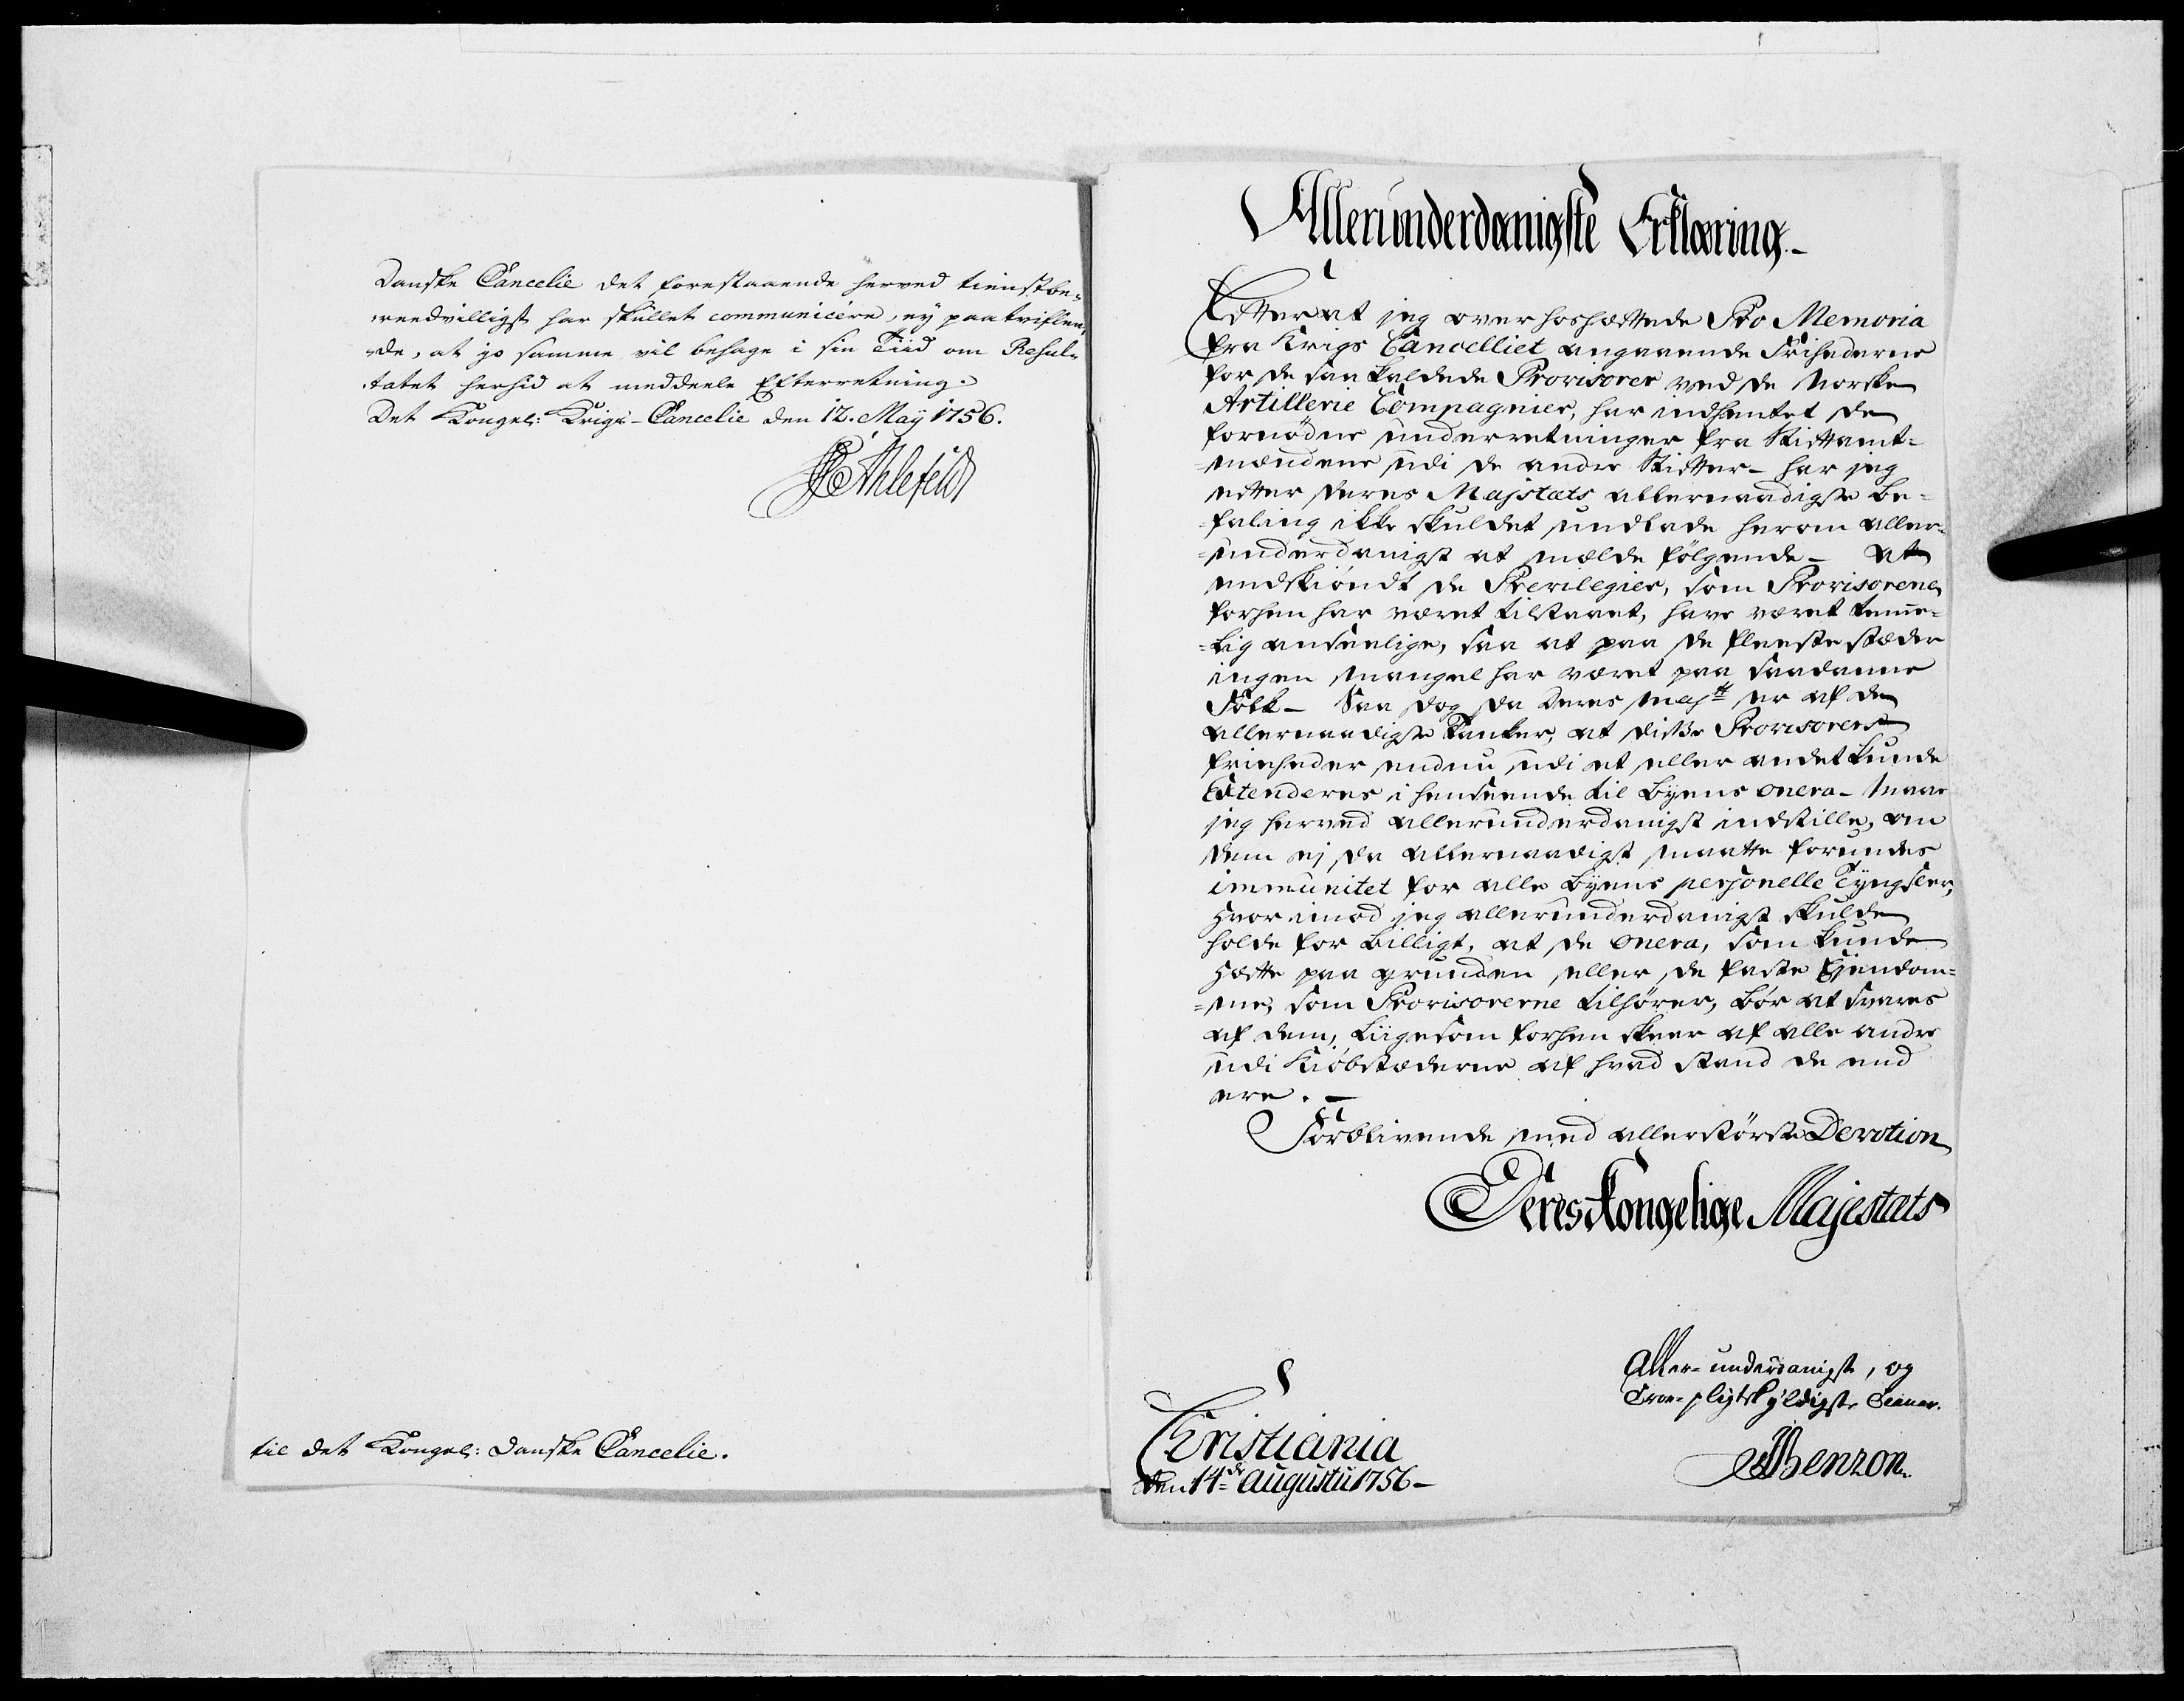 Danske Cancelie det forestaaende herved tienstbe-
reedvilligst har skullet communicere, ey paatvivlen-
de, at jo samme vil behage i sin Tiid om Resul-
tatet herhid at meddeele Efterretning.
Det Kongel: Krigs-Cancelie den 12. May 1756.
Ahlefeldt
til det Kongel: Danske Cancelie.
Allerunderdanigste Erklæring.-
Efter at jeg over hoshæftede Pro Memoria
fra Krigs Cancelliet angaaende Friheederne
for de saa kaldede Provisorer ved de Norske
Artillerie Compagnier, har indhentet de
fornødne underretninger fra Stiftamt-
mændene udi de andre Stifter - har jeg
efter Deres Majstæts allernaadigste Be-
faling ikke skuldet undlade herom aller-
underdanigst at mælde følgende - At
endskiøndt de Previlegier, som Provisorene
forhen har været tilstaaet, have været teme-
lig anseelige, saa at paa de fleeste stæder
ingen Mangel har været paa saadanne
Folk - Saa dog da Deres Majtt er af de
allernaadigste Tanker, at disse Provisorers
friheder endnu udi et eller andet kunde
Extenderes i henseende til Byens onera - Maae
jeg herved allerunderdanigst indstille, om
dem ej da allernaadigst maatte forundes
immunitet for alle Byens personelle Tyngsler,
hvor imod jeg allerunderdanigst skulde
holde for billigt, at de onera, som kunde
hæfte paa grunden eller de faste Ejendom-
me, som Provisorerne tilhører, bør at svares
af dem, liigesom forhen skeer af alle andre
udi Kiøbstæderne af hvad stand de end
ere. -
Forblivende med allerstørste Devotion
Deres Kongelige Majestæts
Aller-underdanigste, og
Troe-pligtskyldigste Tienner.
Benzon.
Christiania
den 14de Augustii 1756 -